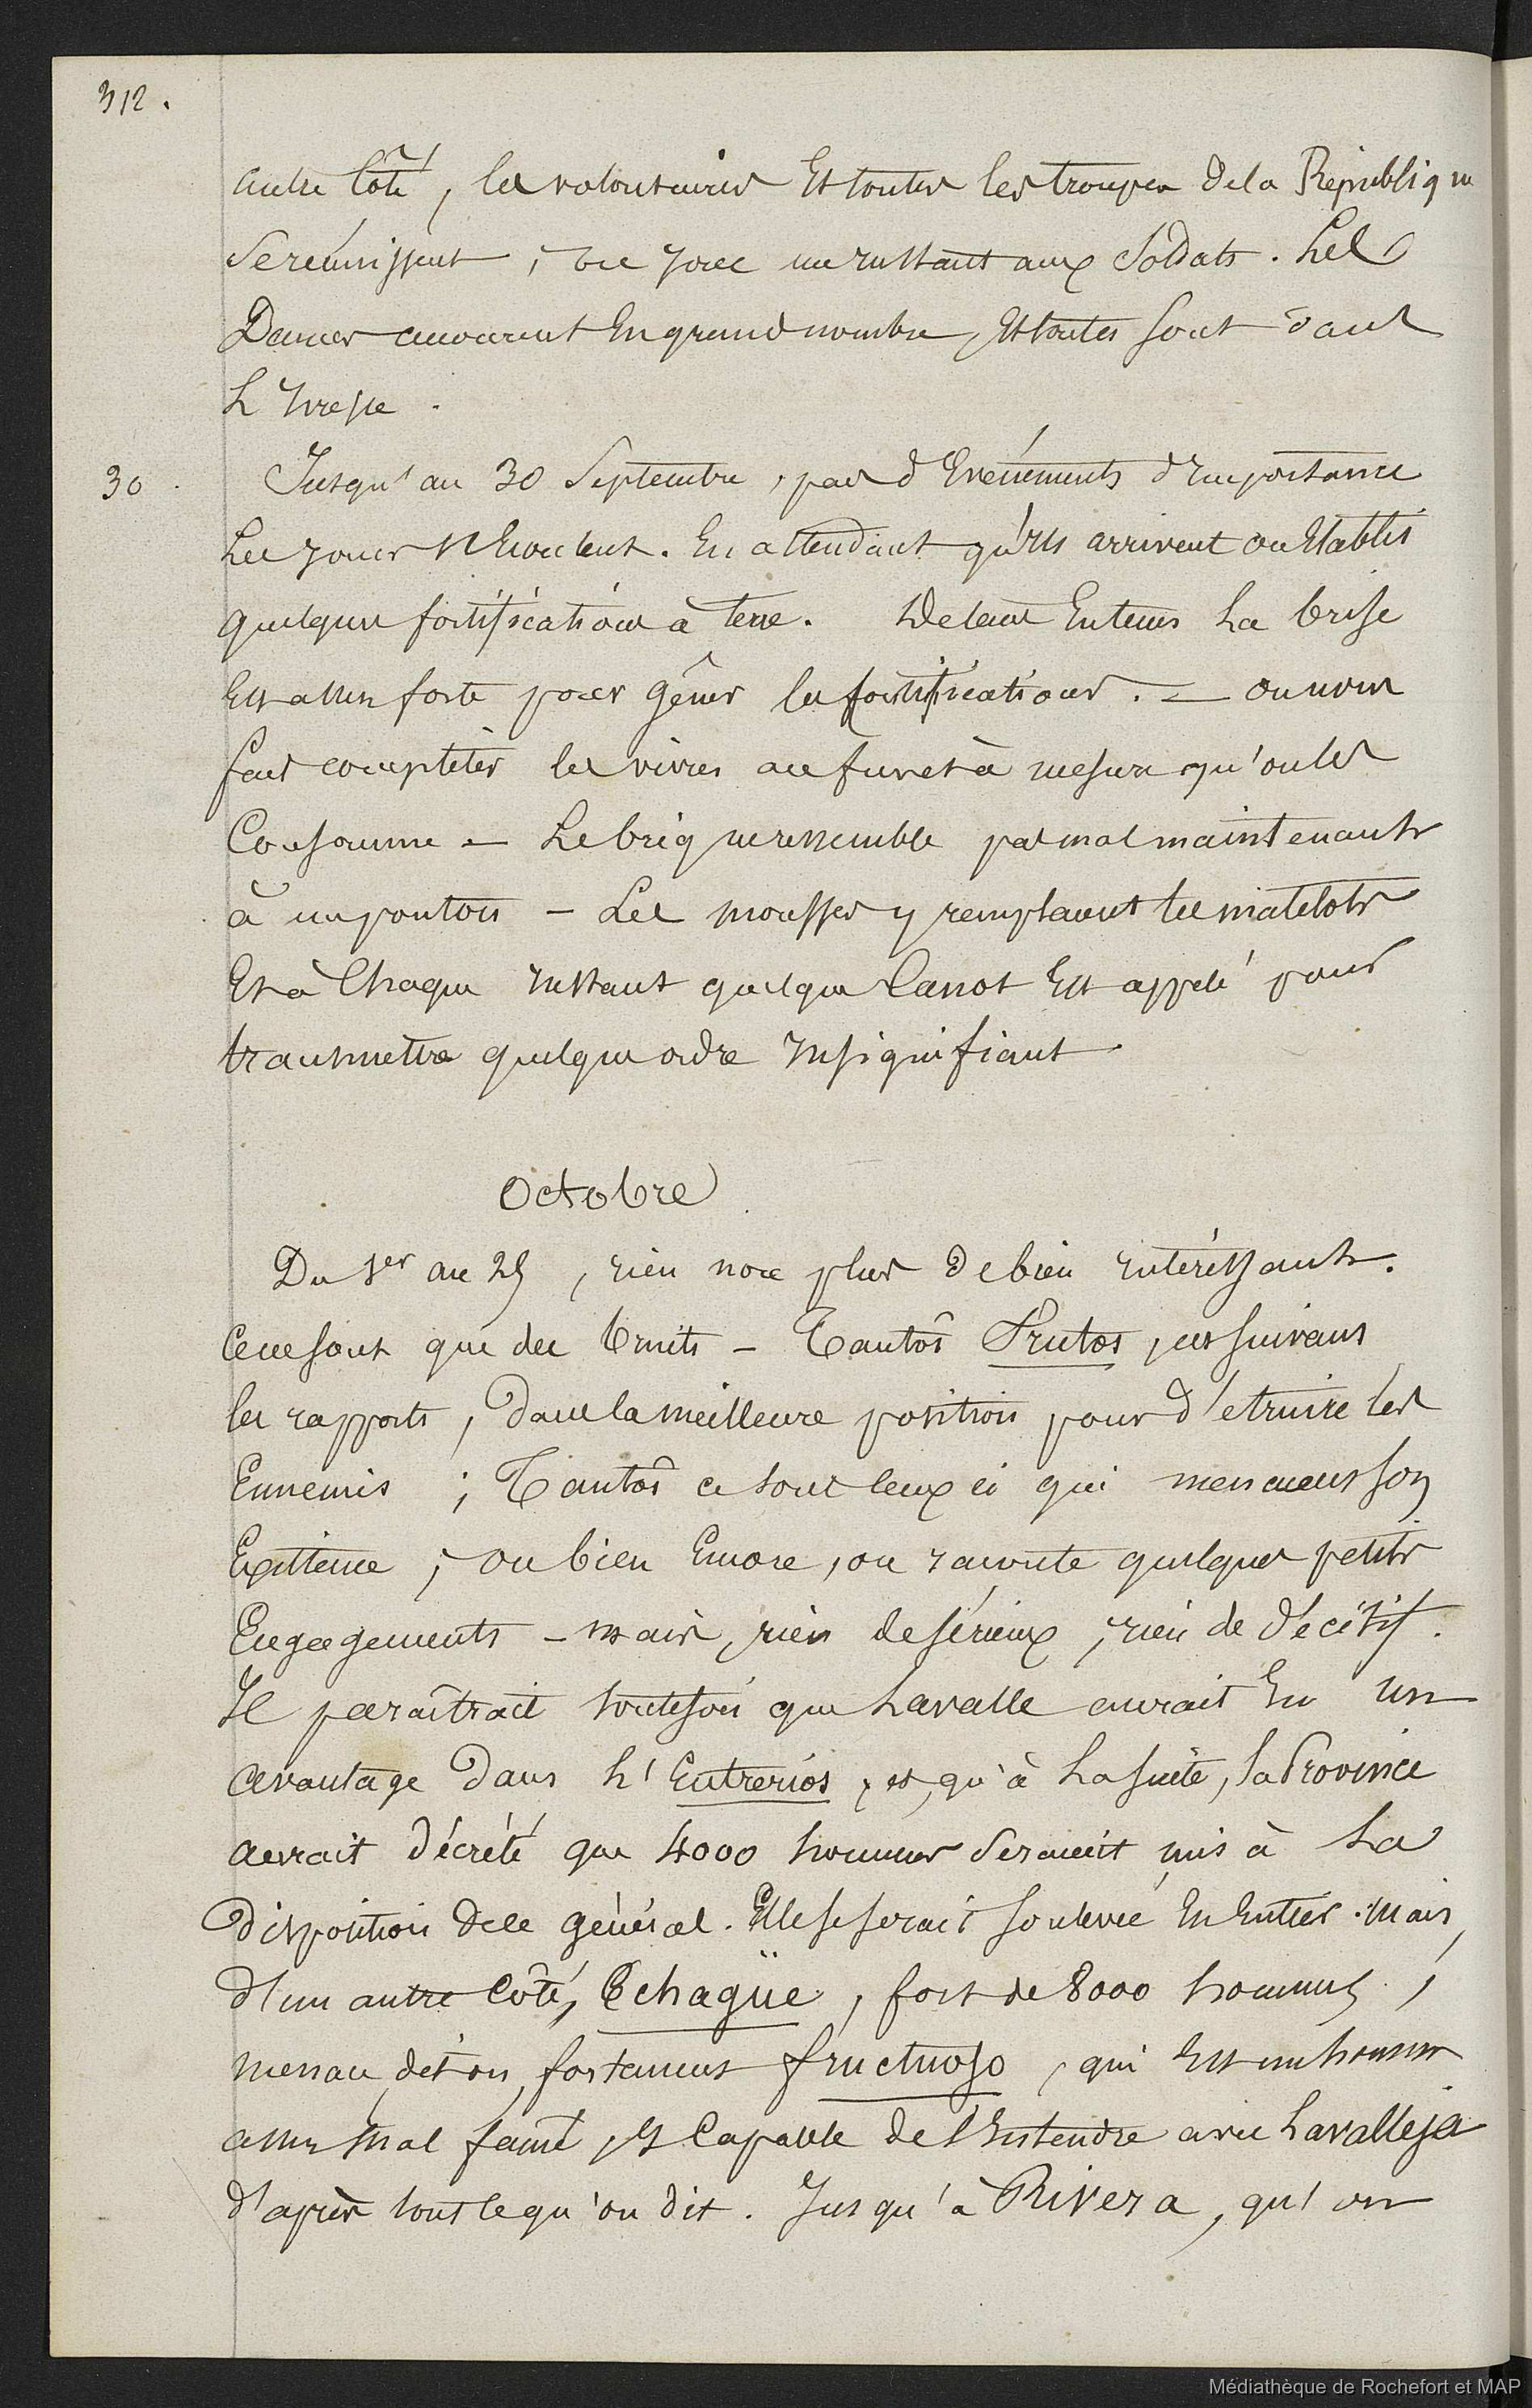 312.
autre Côté, les volontaires Et toutes les troupes de la République
se réunissent, on joue un instant aux Soldats. Les
Dames accourent En grand nombre, Et toutes sont dans
L'Ivresse.
30. Jusqu'au 30 Septembre, pas d'Evénements d'Importance
Les jours s'Ecoulent. En attendant qu'Ils arrivent on Etablit
quelques fortifications à terre. De tems En tems La brise
Est assez forte pour gêner les fortifications. — On nous
fait compléter les vivres au fur et à mesure qu'on les
Consomme — Le brig ressemble pas mal maintenant
à un ponton — Les mousses y remplacent les matelots
Et à Chaque Instant quelque Canot Est appelé pour
transmettre quelque ordre Insignifiant
Octobre
Du 1er au 25, rien non plus de bien Intéressant.
Ce ne sont que des bruits — Tantôt Frutos, est suivant
les rapports, dans la meilleure position pour détruire les
Ennemis ; Tantôt ce sont Ceux ci qui menacent son
Existence ; ou bien Encore, on raconte quelques petits
Engagements — mais, rien de sérieux, rien de décisif.
Il paraîtrait toutefois que Lavalle aurait Eu un
avantage dans L'Entrerios, et, qu'à La suite, La Province
aurait décrété que 4000 hommes seraient mis à La
disposition de ce général. Elle se serait soulevée En Entier. Mais,
d'un autre Côté, Echagüe, fort de 8000 hommes,
menace, dit on, fortement fructuoso, qui Est un homme
assez mal famé, Et Capable de s'Entendre avec Lavalleja
d'après tout ce qu'on dit. Jusqu'à Rivera, qu'on
Médiathèque de Rochefort et MAP